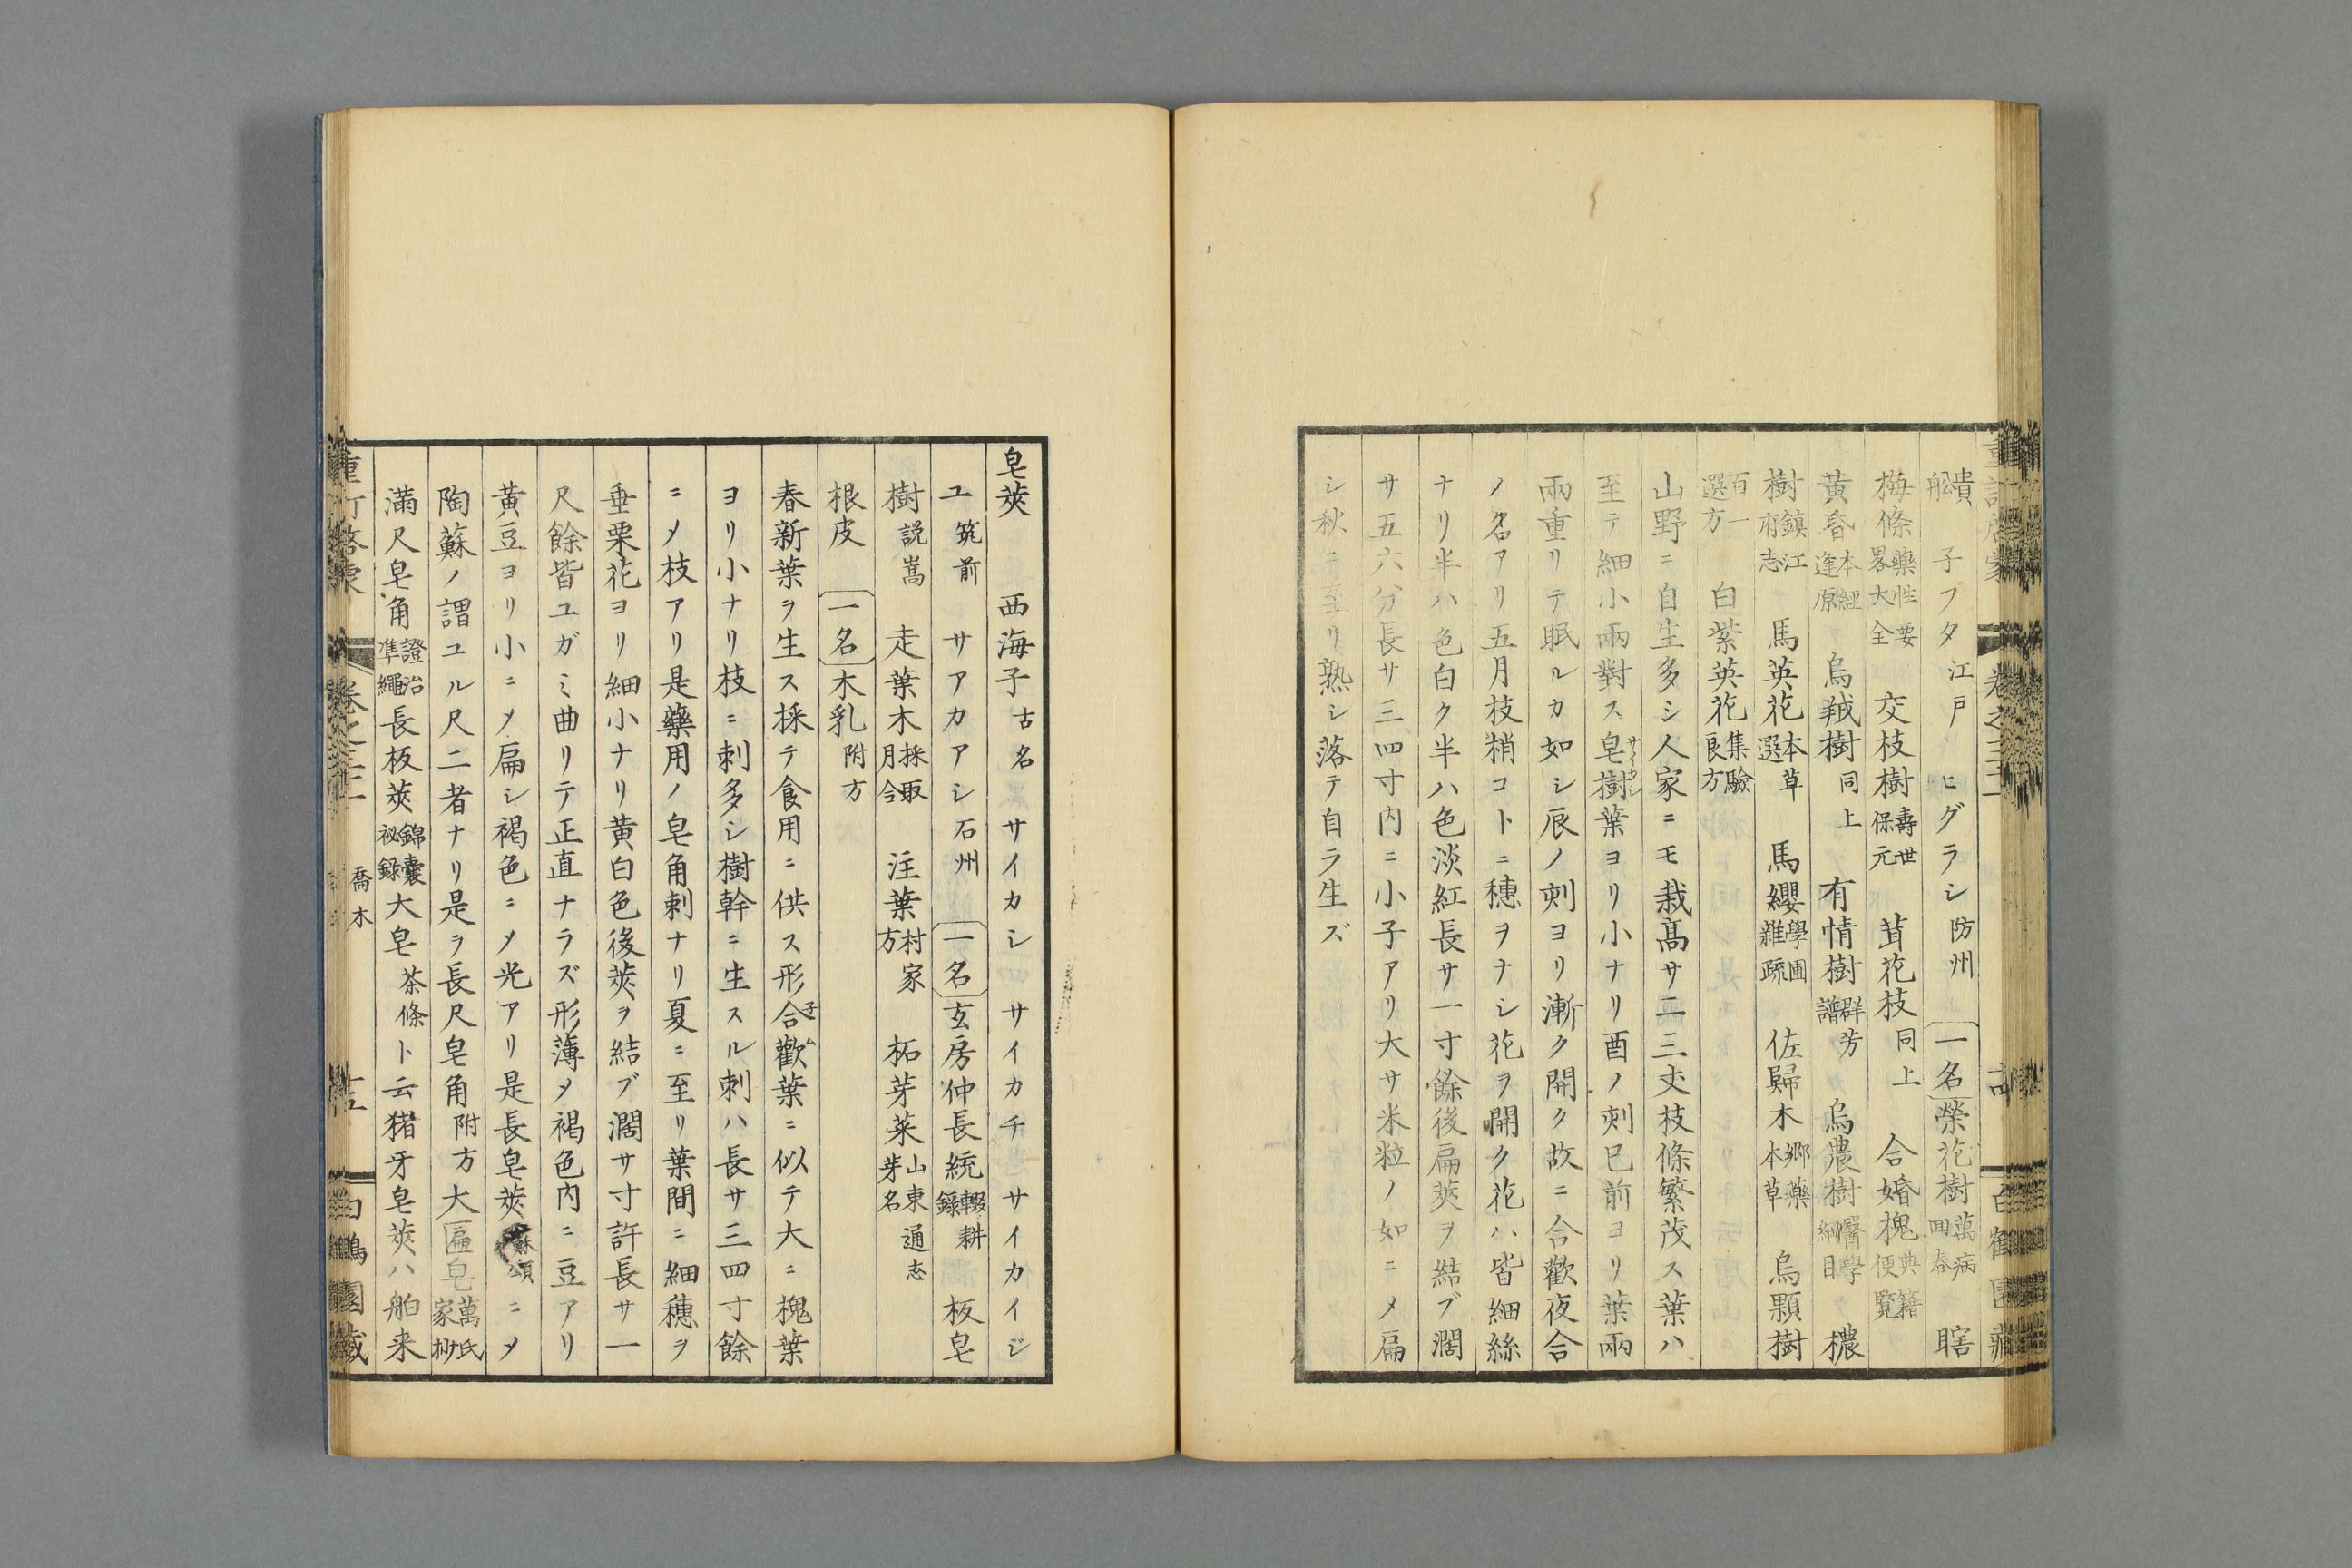 子ブタ江戸 ヒグラシ防州 一名榮花樹萬病回春 瞎
梅條藥性要畧大全 交枝樹壽世保元 茸花枝同上 合婚槐典籍便覧
黄昏本經逢原 烏羢樹同上 有情樹群芳譜 烏農樹醫學綱目 檂
樹鎮江府志 馬英花本草選 馬纓學圃雜疏 佐歸木郷藥本草 烏顆樹
百一選方 白紫英花集驗良方
山野ニ自生多シ人家ニモ栽髙サ二三丈枝條繁茂ス葉ハ
至テ細小兩對ス皂樹サイカシ葉ヨリ小ナリ酉ノ刻已前ヨリ葉兩
兩重リテ眠ルカ如シ辰ノ刻ヨリ漸ク開ク故ニ合歡夜合
ノ名アリ五月枝梢コトニ穗ヲナシ花ヲ開ク花ハ皆細絲
ナリ半ハ色白ク半ハ色淡紅長サ一寸餘後扁莢ヲ結ブ濶
サ五六分長サ三四寸内ニ小子アリ大サ米粒ノ如ニメ扁
シ秋ニ至リ熟シ落テ自ラ生ズ
皂莢 西海子古名 サイカシ サイカチ サイカイジ
ユ筑前 サアカアシ石州 一名玄房仲長統輟耕録 板皂
樹説嵩 走葉木採取月令 注葉村家方 柘芽菜山東通志芽名
根皮 一名木乳附方
春新葉ヲ生ス採テ食用ニ供ス形合歡子ム葉ニ似テ大ニ槐葉
ヨリ小ナリ枝ニ刺多シ樹幹ニ生スル刺ハ長サ三四寸餘
ニメ枝アリ是藥用ノ皂角刺ナリ夏ニ至リ葉間ニ細穗ヲ
垂栗花ヨリ細小ナリ黄白色後莢ヲ結ブ濶サ寸許長サ一
尺餘皆ユガミ曲リテ正直ナラズ形薄メ褐色内ニ豆アリ
黄豆ヨリ小ニメ扁シ褐色ニメ光アリ是長皂莢蘇頌ニメ
陶蘇ノ謂ユル尺二者ナリ是ヲ長尺皂角附方大匾皂萬氏家抄
滿尺皂角證治準繩長板莢錦囊祕録大皂茶條ト云猪牙皂莢ハ舶来
喬木